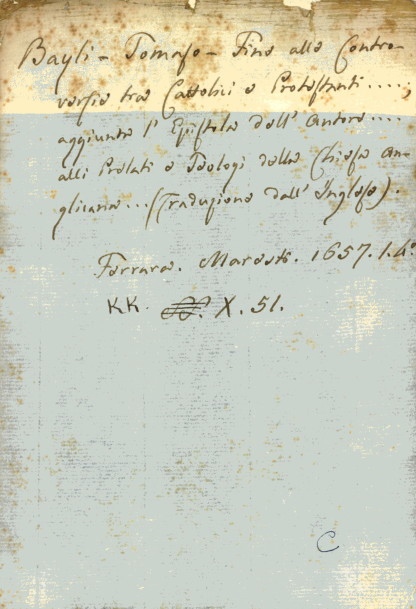 Bayli - Tomaso - Fine alle Contro-
versie tra Cattolici e Protestanti....,
aggiunta l'Epistola dell'Autore....
alli Prelati e Teologi della Chiesa An-
glicana...(Traduzione dall'Inglese).
Ferrara. Maresti. 1657. 1. 4º
KK. X. 51.
C